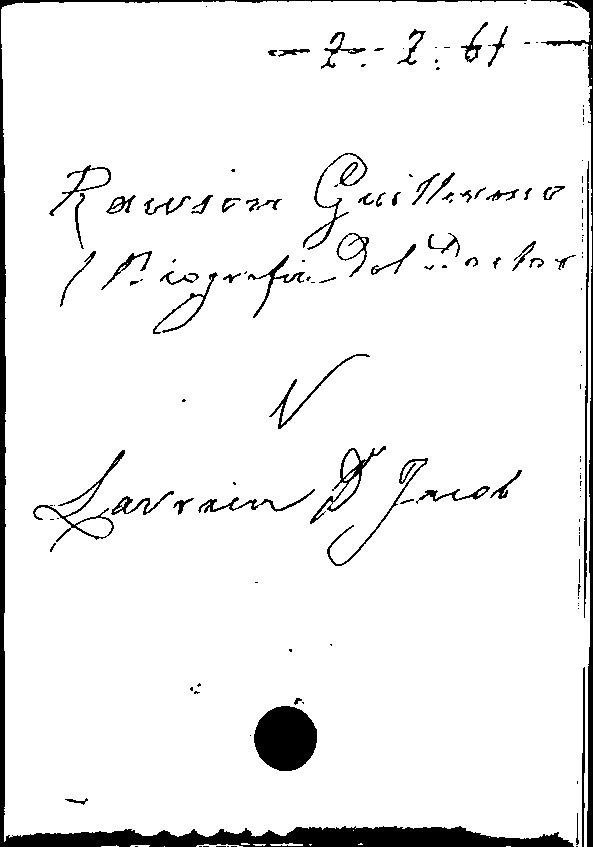 2. 2. 61
Rawson Guillermo
( Biografia Del Doctor
V
Larrain D Jacob